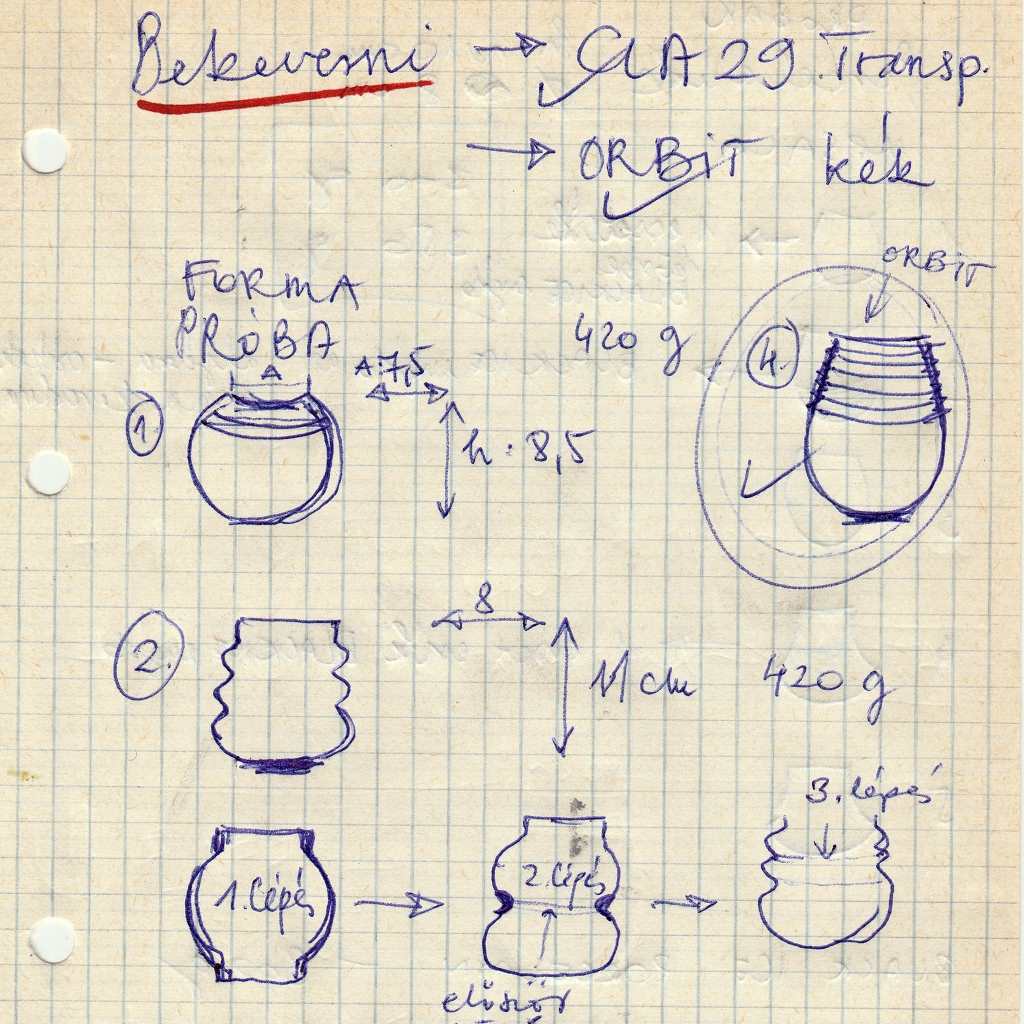 Bekeverni → CLA 29 Transp.
→ ORBIT kék
ORBIT
FORMA
PRÓBA
420 g
4.
A
A:7,5
1
h: 8,5
8
2.
11 cm
420 g
3. lépés
1. lépés
2. lépés
először